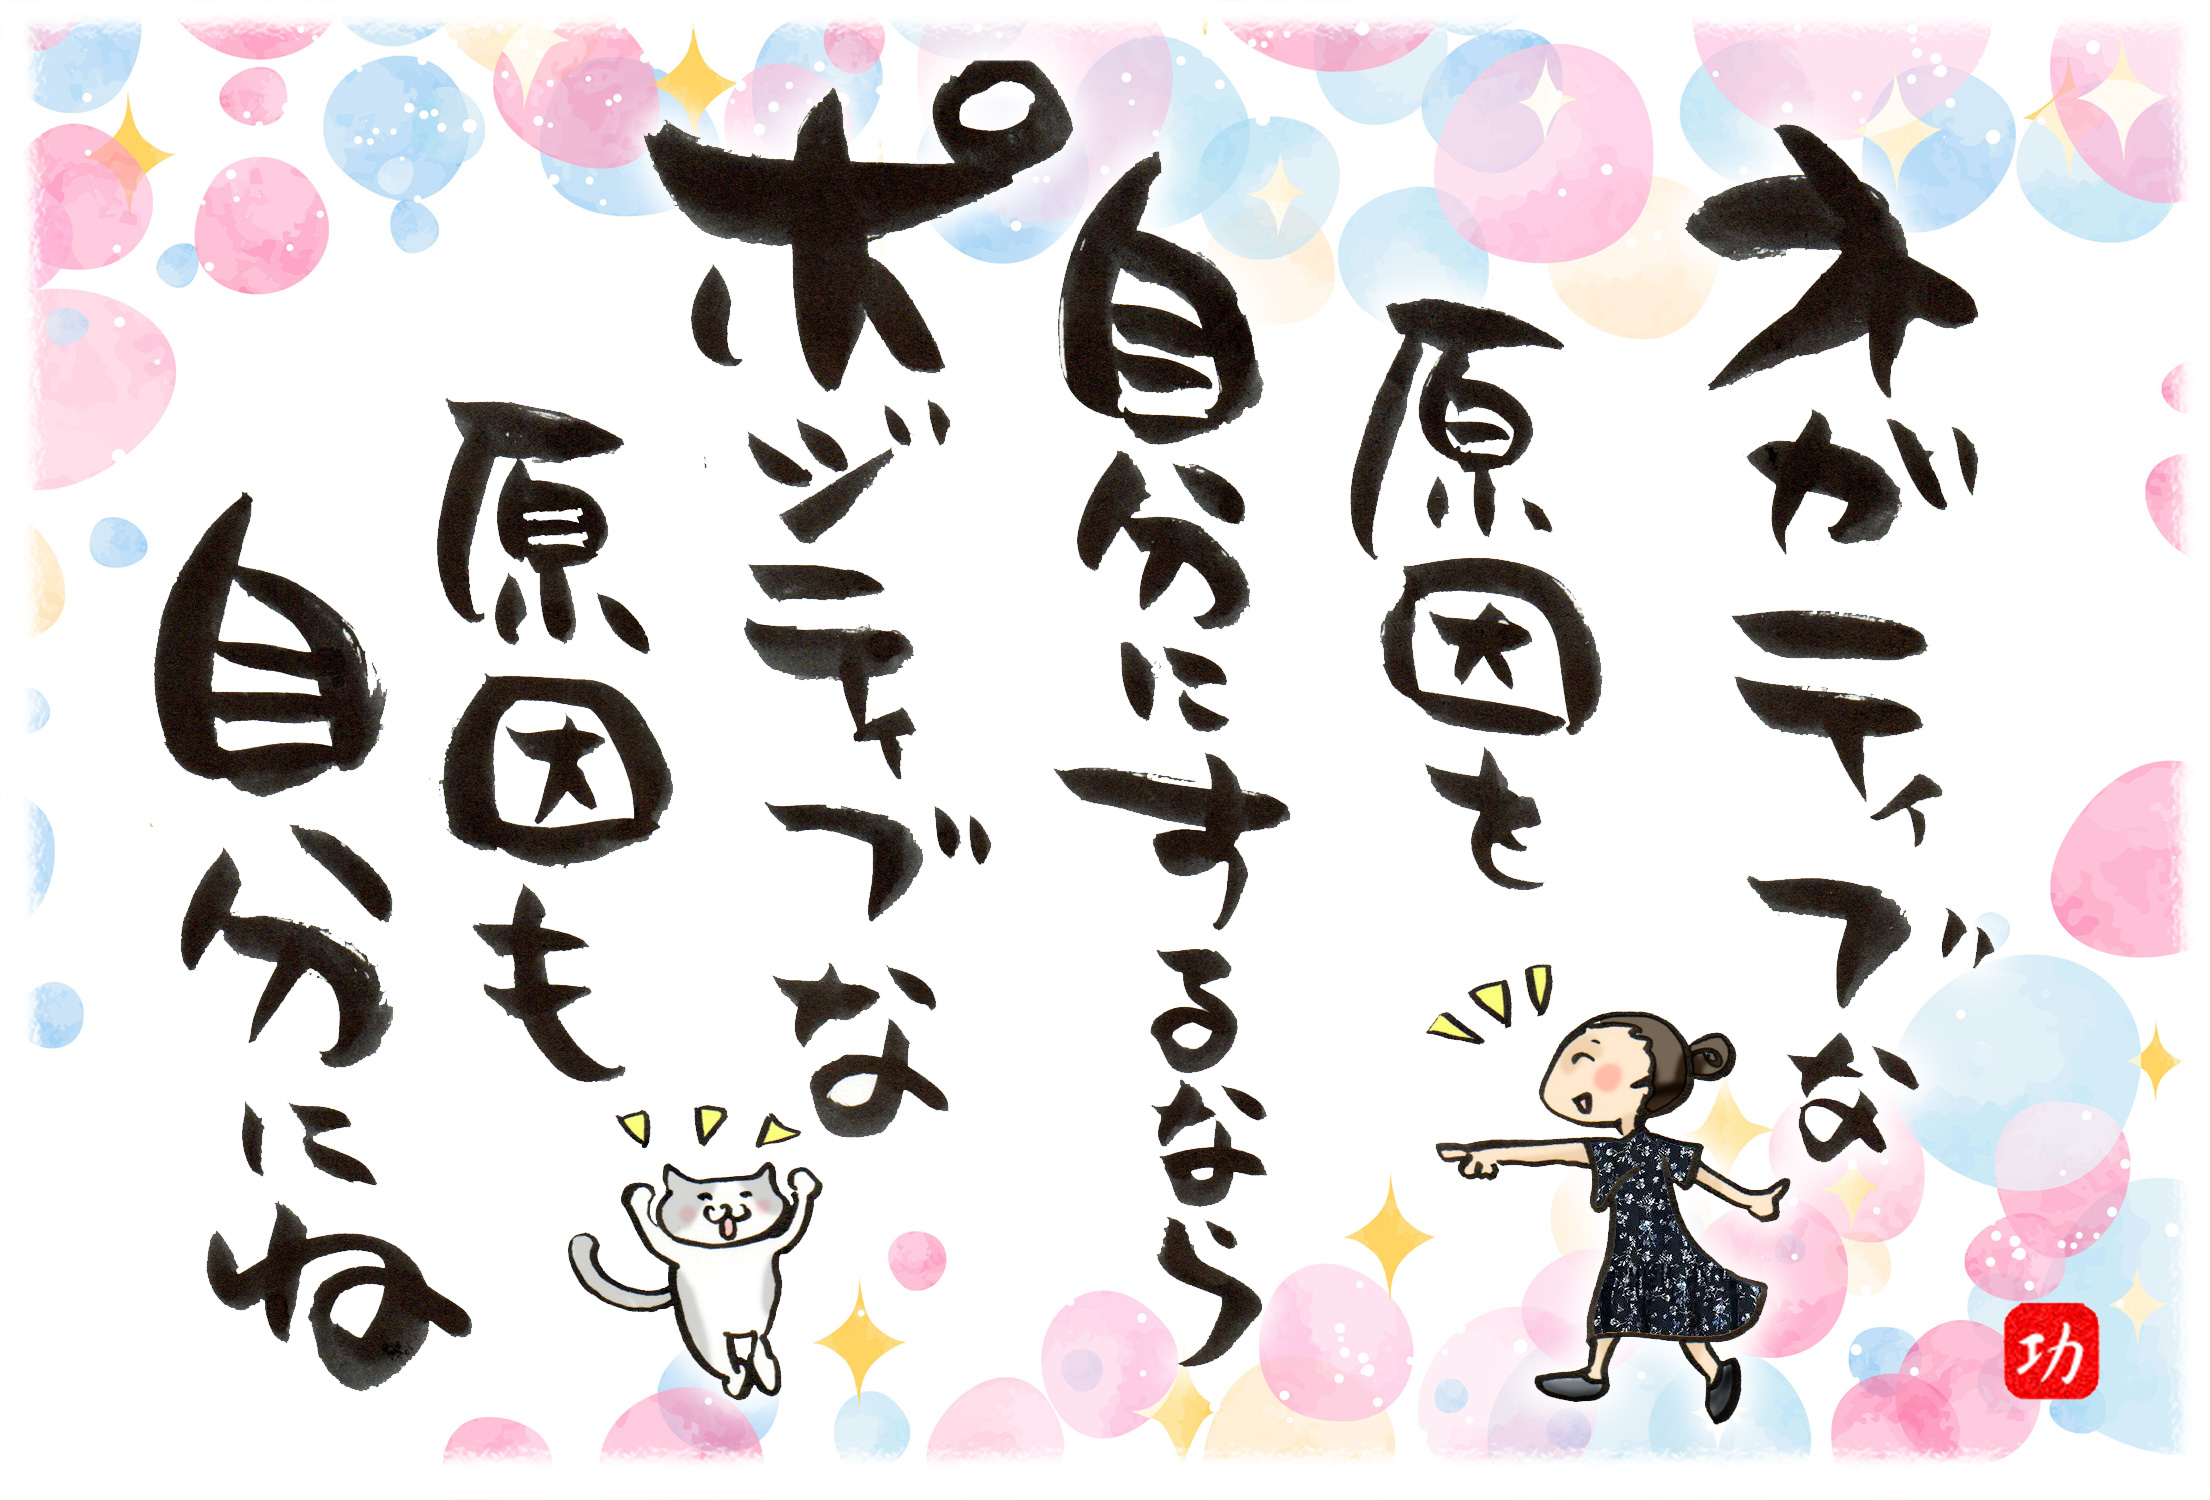 ネガティブな
原因を
自分にするなら
ポジティブな
原因も
自分にね
功